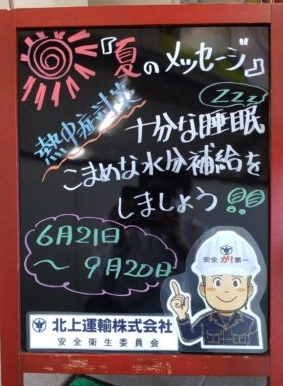 『夏のメッセージ』
熱中症対策
zzz
十分な睡眠
こまめな水分補給を
しましょう!!
6月21日
～9月20日
安全が第一
北上運輸株式会社
安全衛生委員会